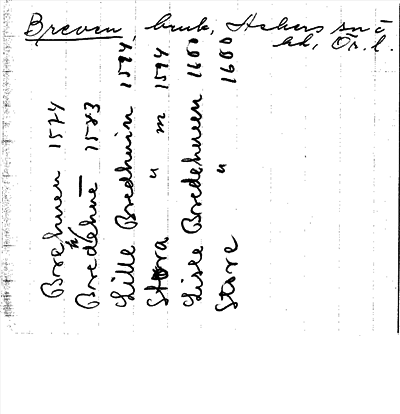 Breven, bruk, Askers sn i
hd, Ör. l.
Brehuen 1574
Bredehue — 1583
Lille Bredhuin 1594
Stora " m 1594
Lisle Bredehueen 1660
Store " 1660